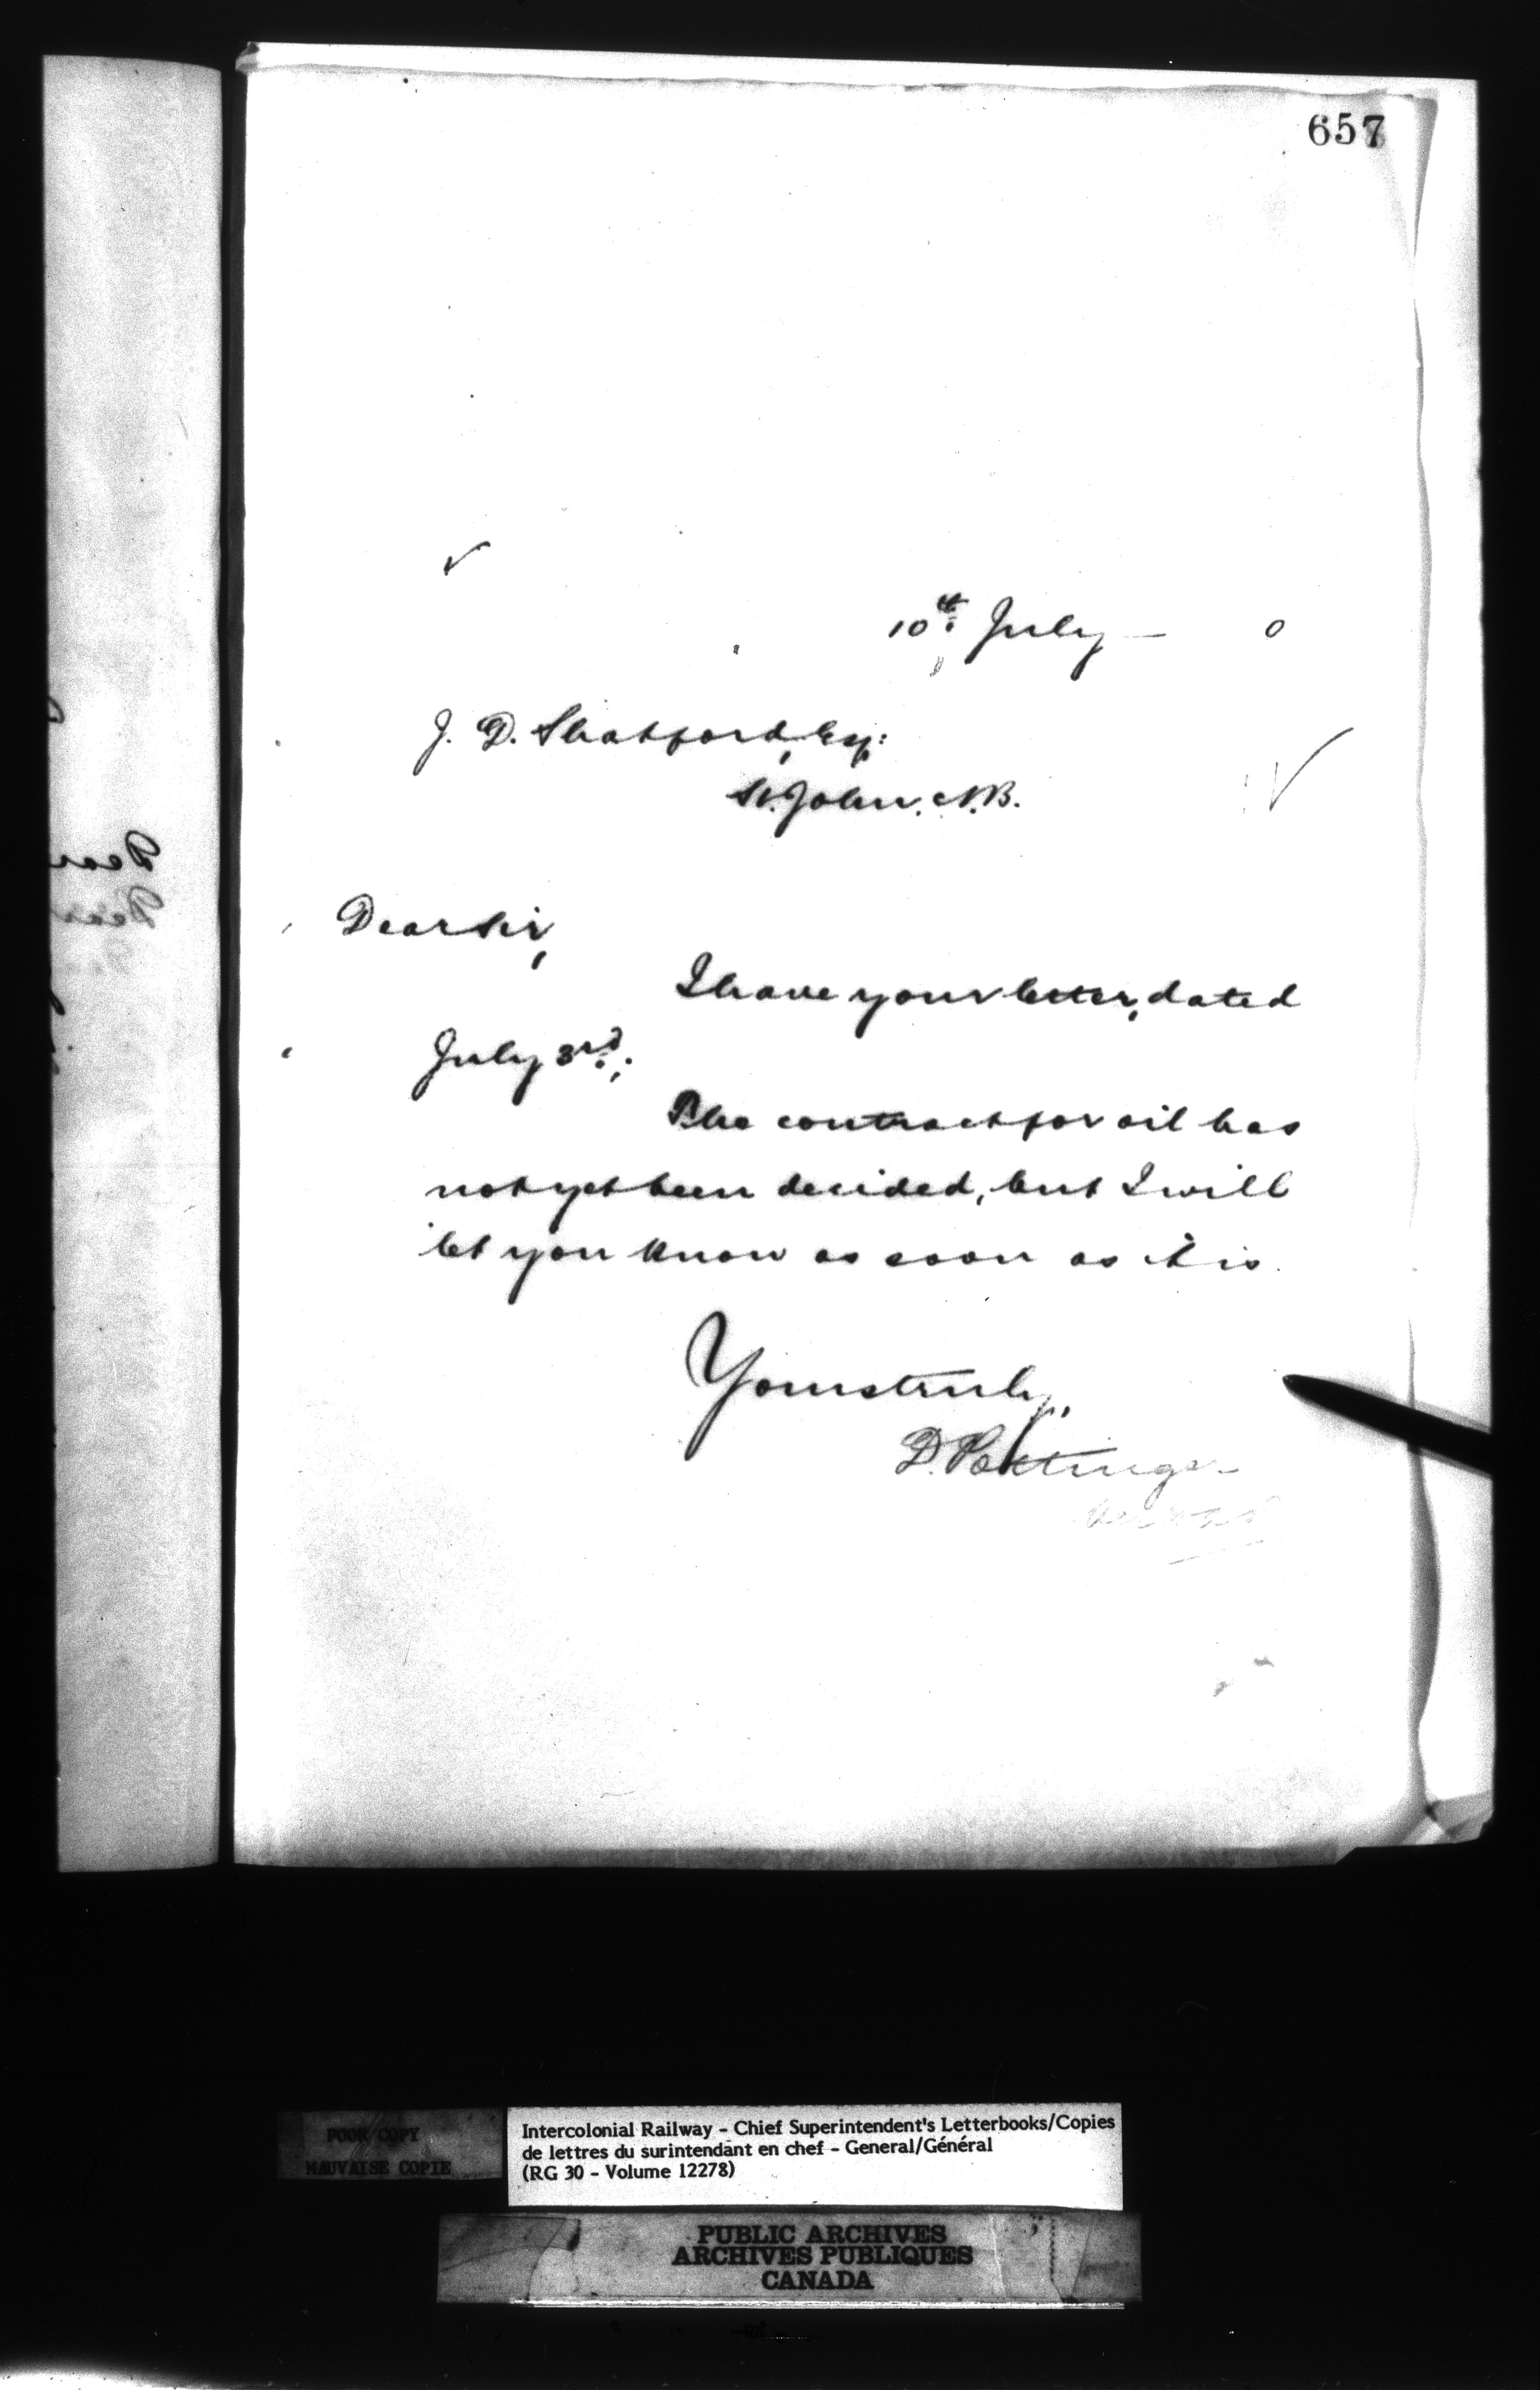 657
10th July — 0
J. D. Shatford, Esq:
St. John. N.B.
Dear Sir,
I have your letter, dated
July 3rd.
The contract for oil has
not yet been decided, but I will
let you know as soon as it is.
Yours truly,
D. Pottinger
POOR COPY
MAUVAISE COPIE
Intercolonial Railway - Chief Superintendent's Letterbooks/Copies
de lettres du surintendant en chef - General/Général
(RG 30 - Volume 12278)
PUBLIC ARCHIVES
ARCHIVES PUBLIQUES
CANADA